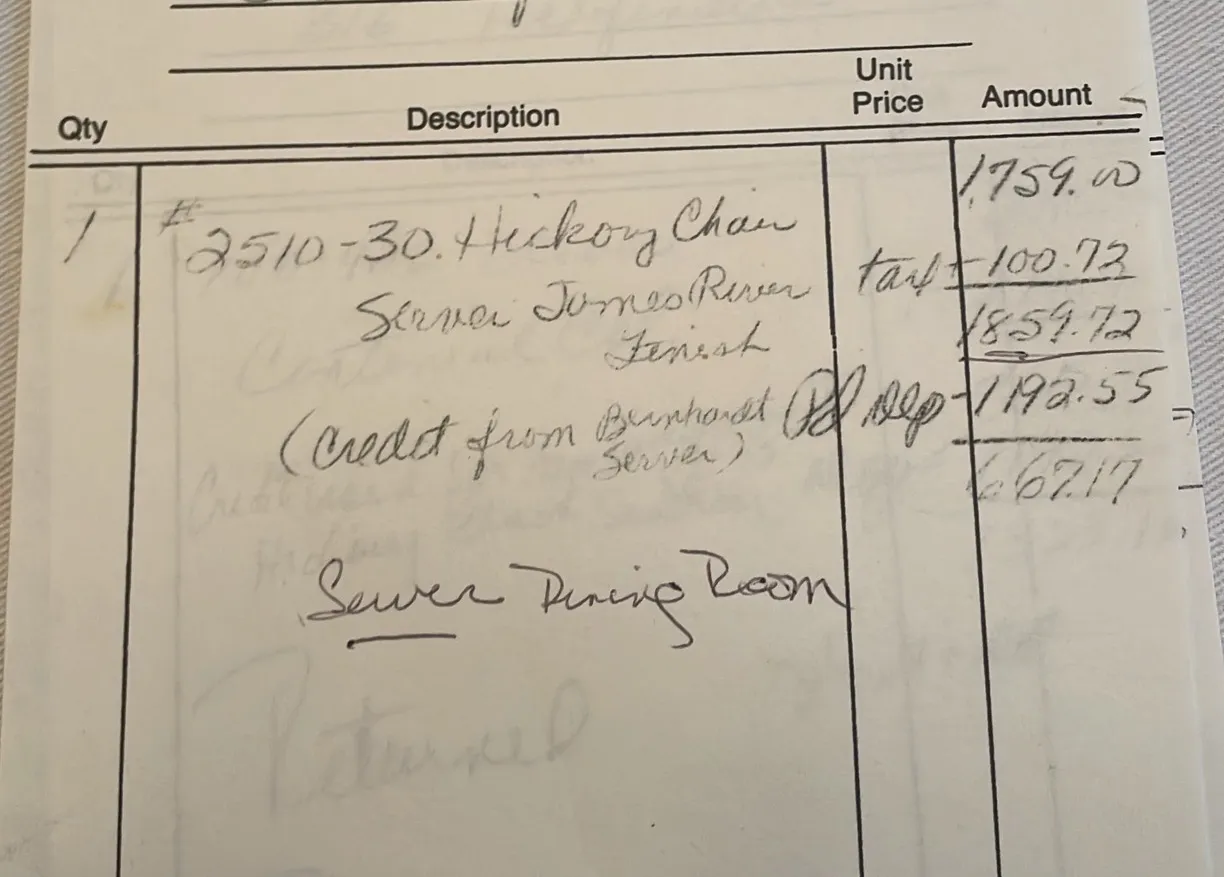 Qty Description Unit Price Amount
1,759.00
1 # 2510-30. Hickory Chair
tax 100.72
Server James River
1859.72
Finish
(Credit from Bernhardt Pd Dep -1192.55
Server)
667.17
Server Dining Room
Returned